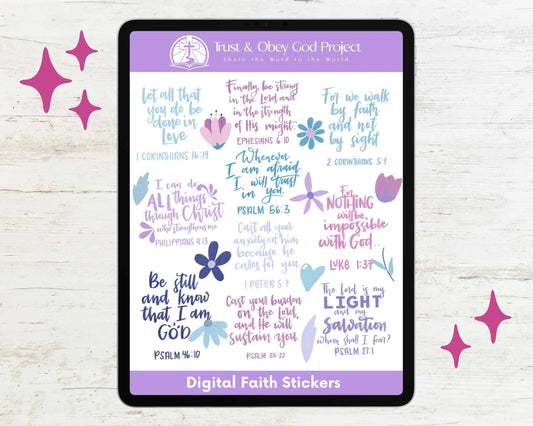 Trust & Obey God Project
Share the Word to the World
Let all that
you do be
done in
Love
1 CORINTHIANS 16:14
Finally, be strong
in the Lord and in
the strength
of His might.
EPHESIANS 6:10
For we walk
by faith
and not
by sight
2 CORINTHIANS 5:7
Whenever
I am afraid,
I will trust
in you.
PSALM 56:3
I can do
ALL things
through Christ
who strengthens me
PHILIPPIANS 4:13
For
NOTHING
will be
impossible
with God...
LUKE 1:37
Cast all your
anxiety on him
because he
cares for you.
1 PETER 5:7
Be still
and know
that I am
GOD
PSALM 46:10
Cast your burden
on the Lord,
and He will
sustain you.
PSALM 55:22
The Lord is my
LIGHT
and my
Salvation
whom shall I fear?
PSALM 27:1
Digital Faith Stickers